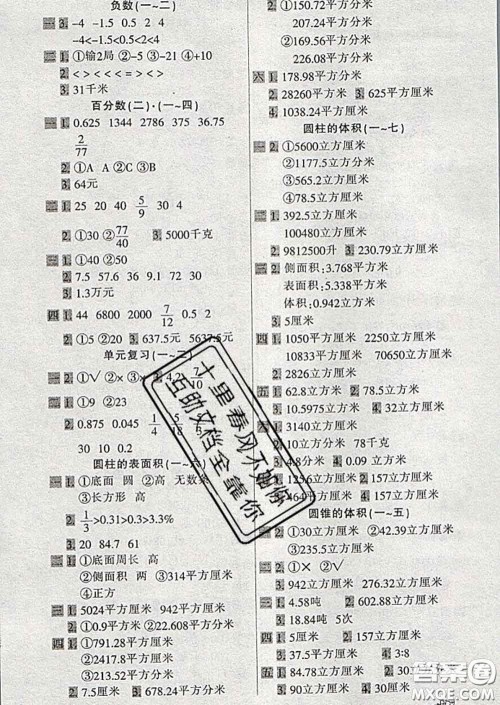 负数(一~二)
三 3. -4 -1.5 0.5 2 4
-4<-1.5<0.5<2<4
二 1. ①输2局 ②-5 ③-21 ④+10
2. < > < < < = > <
3. 31千米
百分数(二)·(一~四)
一 1. 0.625 1344 2786 375 36.75
2/77
2. ①A A ②C ③B
3. 64元
二 1. 25 20 40 5/9 30 4
2. ①30 ②77/40 3. 5000千克
三 1. ①40 ②50
2. 7.5 57.6 30 2 1.1 9.2
3. 1.3万元
四 1. 44 6800 2000 7/12 0.5 2
2. ①5 ②20 3. 637.5元 5637.5元
单元复习(一~二)
一 2. ①√ ②× ③×
二 1. ①9 ②23
2. 0.875 0.045 1/4
30 10 0.2
圆柱的表面积
一 1. ①底面 圆 ②高 无数条
③长方形 高
2. 1/3>0.31>0.3>3.3%
3. 20 84.7 61
二 1. ①底面周长 高
②侧面积 两 ③314平方厘米
④正方
三 1. 5024平方厘米 942平方厘米
2. ①0.9 ②8 3. 650平方厘米
四 1. ①791.28平方厘米
②2417.8平方厘米
③2213.7平方厘米
2. 7.5厘米 3. 678.24平方厘米
①150.72平方厘米
207.24平方厘米
②169.56平方厘米
226.08平方厘米
六 1. 178.98平方分米
2. 28260平方厘米 3. 625平方厘米
4. 1038.24平方厘米
圆柱的体积(一~七)
一 2. ①5600立方厘米
②1177.5立方分米
③565.2立方厘米
④78.5立方厘米
二 1. 392.5立方厘米
100480立方厘米
2. 9812500升 3. 230.79立方厘米
三 2. 侧面积:3.768平方米
表面积:5.338平方米
体积:0.942立方米
3. 5厘米
四 1. 1050平方厘米 2250立方厘米
10833平方厘米 70650立方厘米
2. 2826立方厘米
五 1. 62.8立方厘米 2. 78.5立方厘米
3. 10.5975立方米 4. 32立方厘米
2. 10立方分米 78千克
3. 4.8分米 4. 0.09立方米
1. 1256立方厘米 2. 157立方厘米
3. 464平方厘米
圆锥的体积(一~五)
一 2. ①30立方米 ②42.39立方厘米
二 2. ①× ②√ ③×
3. 942立方厘米 276.32立方厘米
三 1. 4.58吨 2. 552.64立方厘米
3. 18.84吨 5次
四 1. 5厘米 2. 157立方厘米
3. 37.5立方厘米 4. 3:8
五 1. 84.78立方厘米 2. 30
3. 90立方厘米 4. 30立方厘米
十里春风不如你
互助文档全靠你
答案圈
MXQE.COM